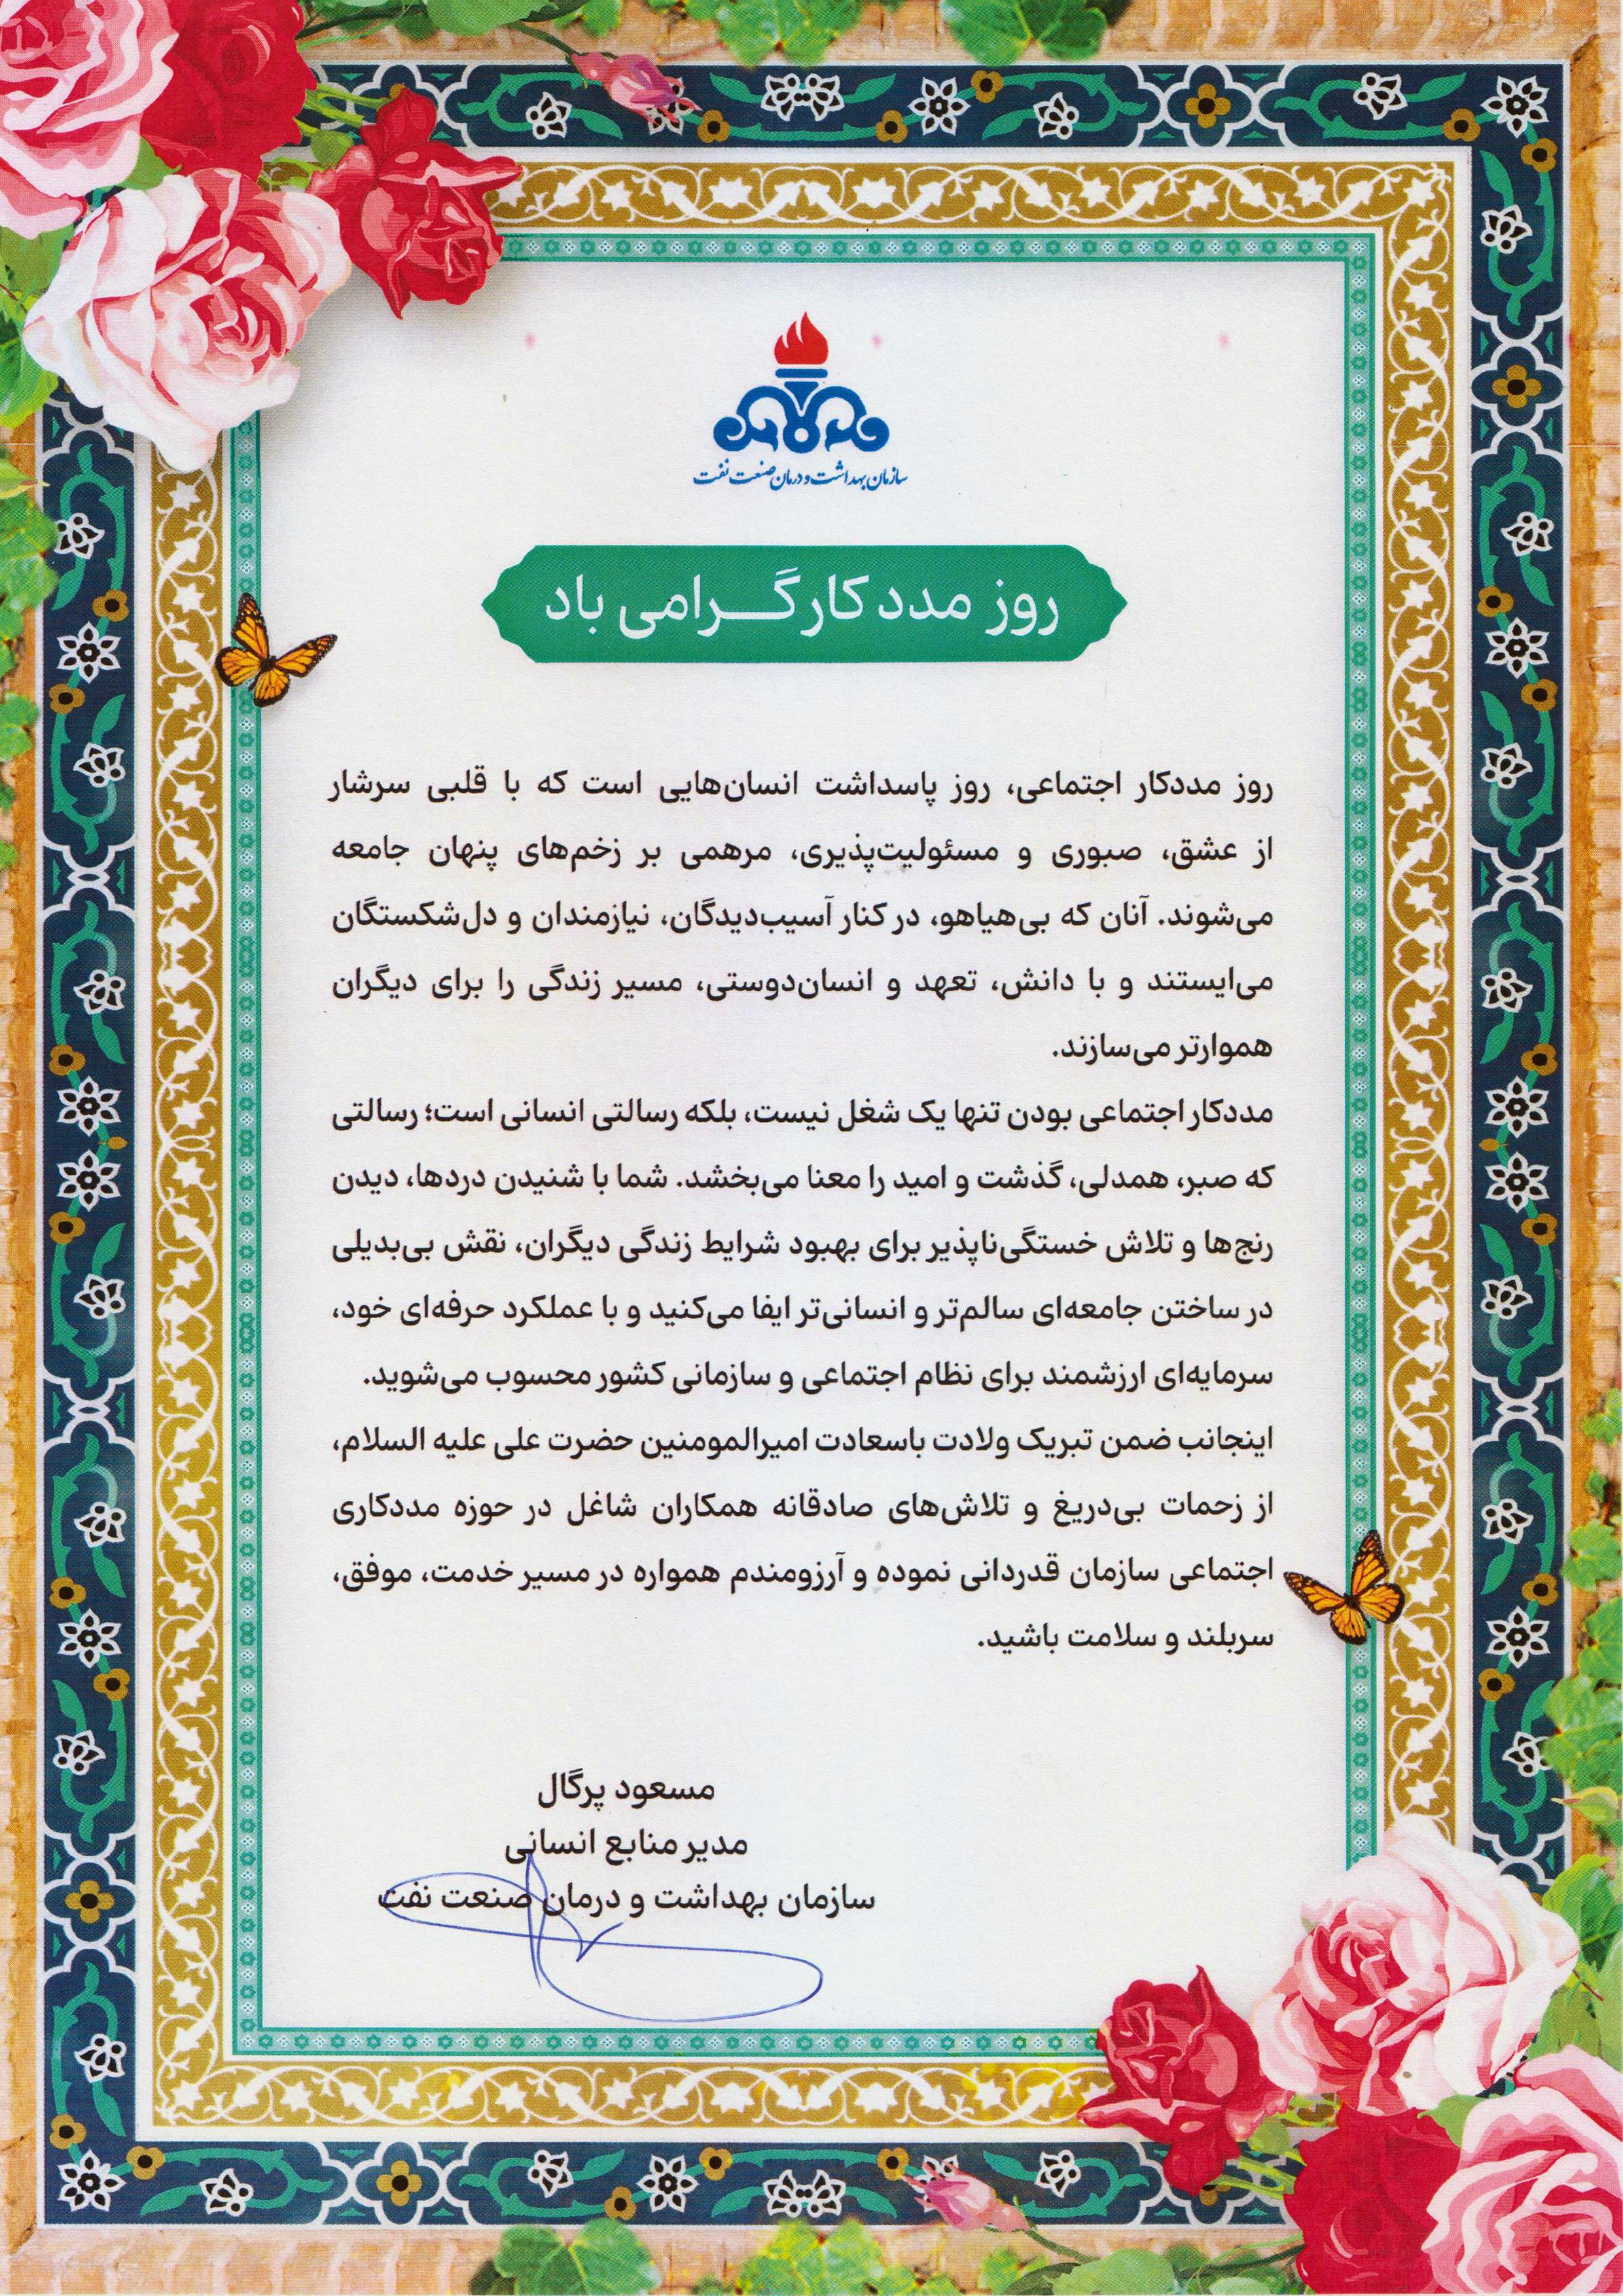 سازمان بهداشت و درمان صنعت نفت
روز مددکار گـــرامی باد
روز مددکار اجتماعی، روز پاسداشت انسان‌هایی است که با قلبی سرشار
از عشق، صبوری و مسئولیت‌پذیری، مرهمی بر زخم‌های پنهان جامعه
می‌شوند. آنان که بی‌هیاهو، در کنار آسیب‌دیدگان، نیازمندان و دل‌شکستگان
می‌ایستند و با دانش، تعهد و انسان‌دوستی، مسیر زندگی را برای دیگران
هموارتر می‌سازند.
مددکار اجتماعی بودن تنها یک شغل نیست، بلکه رسالتی انسانی است؛ رسالتی
که صبر، همدلی، گذشت و امید را معنا می‌بخشد. شما با شنیدن دردها، دیدن
رنج‌ها و تلاش خستگی‌ناپذیر برای بهبود شرایط زندگی دیگران، نقش بی‌بدیلی
در ساختن جامعه‌ای سالم‌تر و انسانی‌تر ایفا می‌کنید و با عملکرد حرفه‌ای خود،
سرمایه‌ای ارزشمند برای نظام اجتماعی و سازمانی کشور محسوب می‌شوید.
اینجانب ضمن تبریک ولادت باسعادت امیرالمومنین حضرت علی علیه السلام،
از زحمات بی‌دریغ و تلاش‌های صادقانه همکاران شاغل در حوزه مددکاری
اجتماعی سازمان قدردانی نموده و آرزومندم همواره در مسیر خدمت، موفق،
سربلند و سلامت باشید.
مسعود پرگال
مدیر منابع انسانی
سازمان بهداشت و درمان صنعت نفت